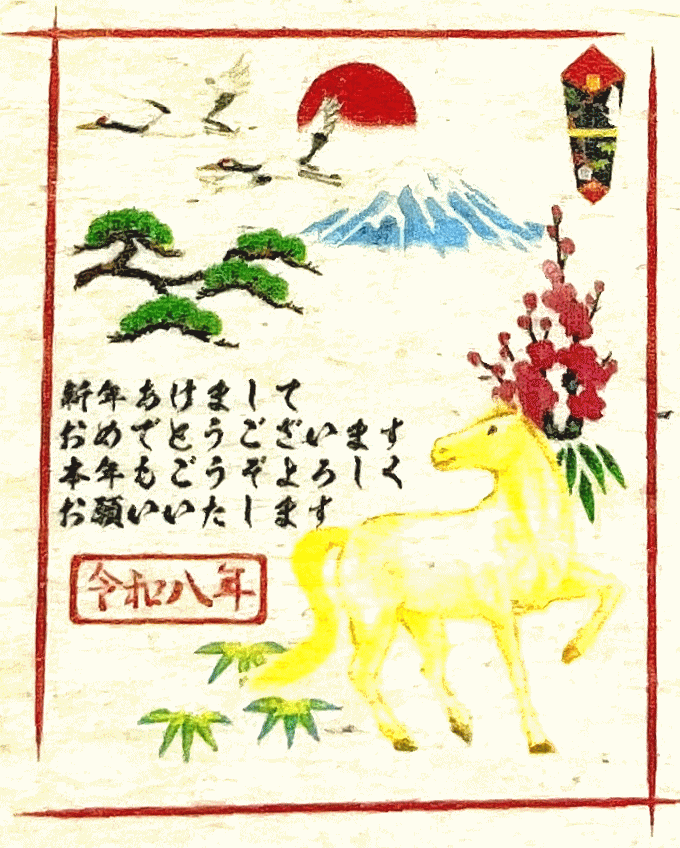 新年あけまして
おめでとうございます
本年もどうぞよろしく
お願いいたします
令和八年